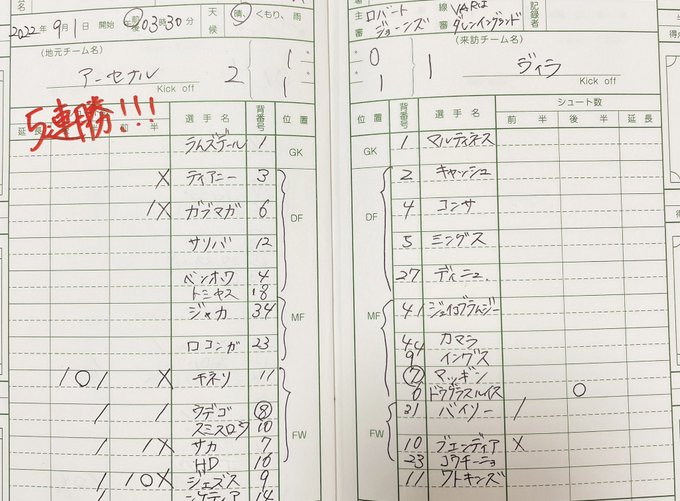 2022年 9月1日 開始 午前後 03時30分 天候 晴、くもり、雨
(地元チーム名)
アーセナル 2 1 1
Kick off
5連勝!!!
延長 半 選手名 背番号 位置
ラムズデール 1 GK
X ティアニー 3
1X ガブマガ 6 DF
サリバ 12
ベンホワ 4
トミヤス 18
ジャカ 34 MF
ロコンガ 23
/O/ X チネリ 11
/ / ウデゴ 8
スミスロウ 10 FW
/ /X サカ 7
HD 16
/OX ジェズス 9
ンケティア 14
主審 ロバートジョーンズ 線審 VARはダレンイングランド 記録者
(来訪チーム名)
0 1 1 ヴィラ
Kick off
位置 背番号 選手名 シュート数
前半 後半 延長
GK 1 マルティネス
2 キャッシュ
DF 4 コンサ
5 ミングス
27 ディニュ
MF 41 ジェイコブラムジー
44 カマラ
9 イングス
7 マッギン
6 ドウグラスルイス O
21 ベイリー /
FW 10 ブエンディア X
23 コウチーニョ
11 ワトキンズ